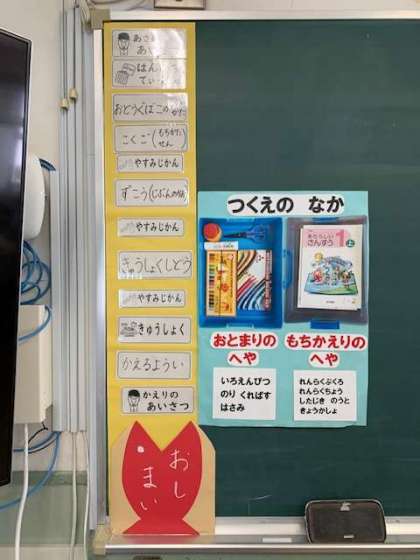 あさ
あ
はん
てぃ
おどうぐばこの
こくご(もちかた せん
やすみじかん
ずこう(じぶんの
やすみじかん
きゅうしょくしどう
やすみじかん
きゅうしょく
かえるようい
かえりの
あいさつ
おしまい
つくえの なか
あたらしい
さんすう 1 上
おとまりの
へや
もちかえりの
へや
いろえんぴつ
のり くれぱす
はさみ
れんらくぶくろ
れんらくちょう
したじき のうと
きょうかしょ